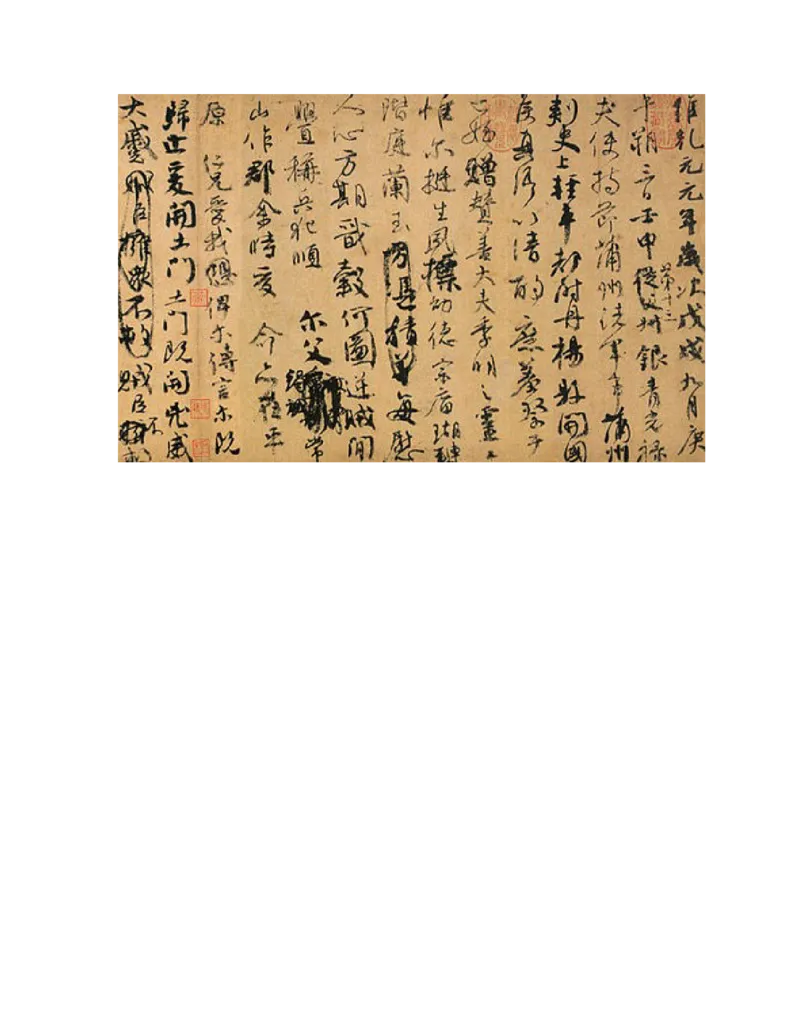 維乾元元年歲次戊戌九月庚
午朔三日壬申第十三從父銀青光祿
夫使持節蒲州諸軍事蒲州
刺史上輕車都尉丹楊縣開國
侯真卿以清酌庶羞祭于
亡姪贈贊善大夫季明之靈曰
惟尔挺生夙標幼德宗廟瑚璉
階庭蘭玉方憑積善每慰
人心方期戩穀何圖逆賊閒
釁稱兵犯順尔父竭誠常
山作郡余時受命亦在平
原仁兄愛我俾尔傳言尔既
歸止爰開土門土門既開凶威
大蹙賊臣擁眾不救賊臣不